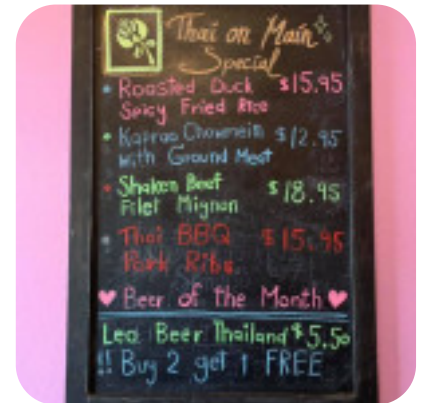 Thai on Main
Special
Roasted Duck $15.95
Spicy Fried Rice
Kaprao Chowmein $12.95
with Ground Meat
Shaken Beef $18.95
Filet Mignon
Thai BBQ $15.95
Pork Ribs
Beer of the Month
Leo Beer Thailand $5.50
!! Buy 2 get 1 FREE